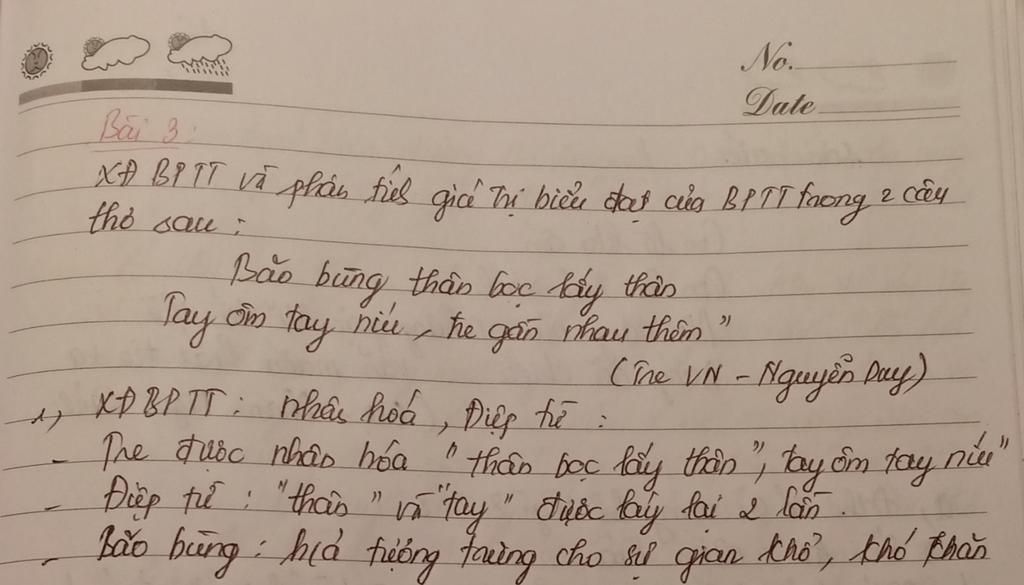 No.
Date
Bài 3:
XĐ BPTT và phân tích giá trị biểu đạt của BPTT trong 2 câu
thơ sau:
Bão bùng thân bọc lấy thân
Tay ôm tay níu, tre gần nhau thêm"
(Tre VN - Nguyễn Duy)
1, XĐ BPTT: nhân hoá, Điệp từ:
- Tre được nhân hóa "thân bọc lấy thân", tay ôm tay níu"
- Điệp từ: "thân" và "tay" được lấy lại 2 lần.
- Bão bùng: h/ả tượng trưng cho sự gian khổ, khó khăn